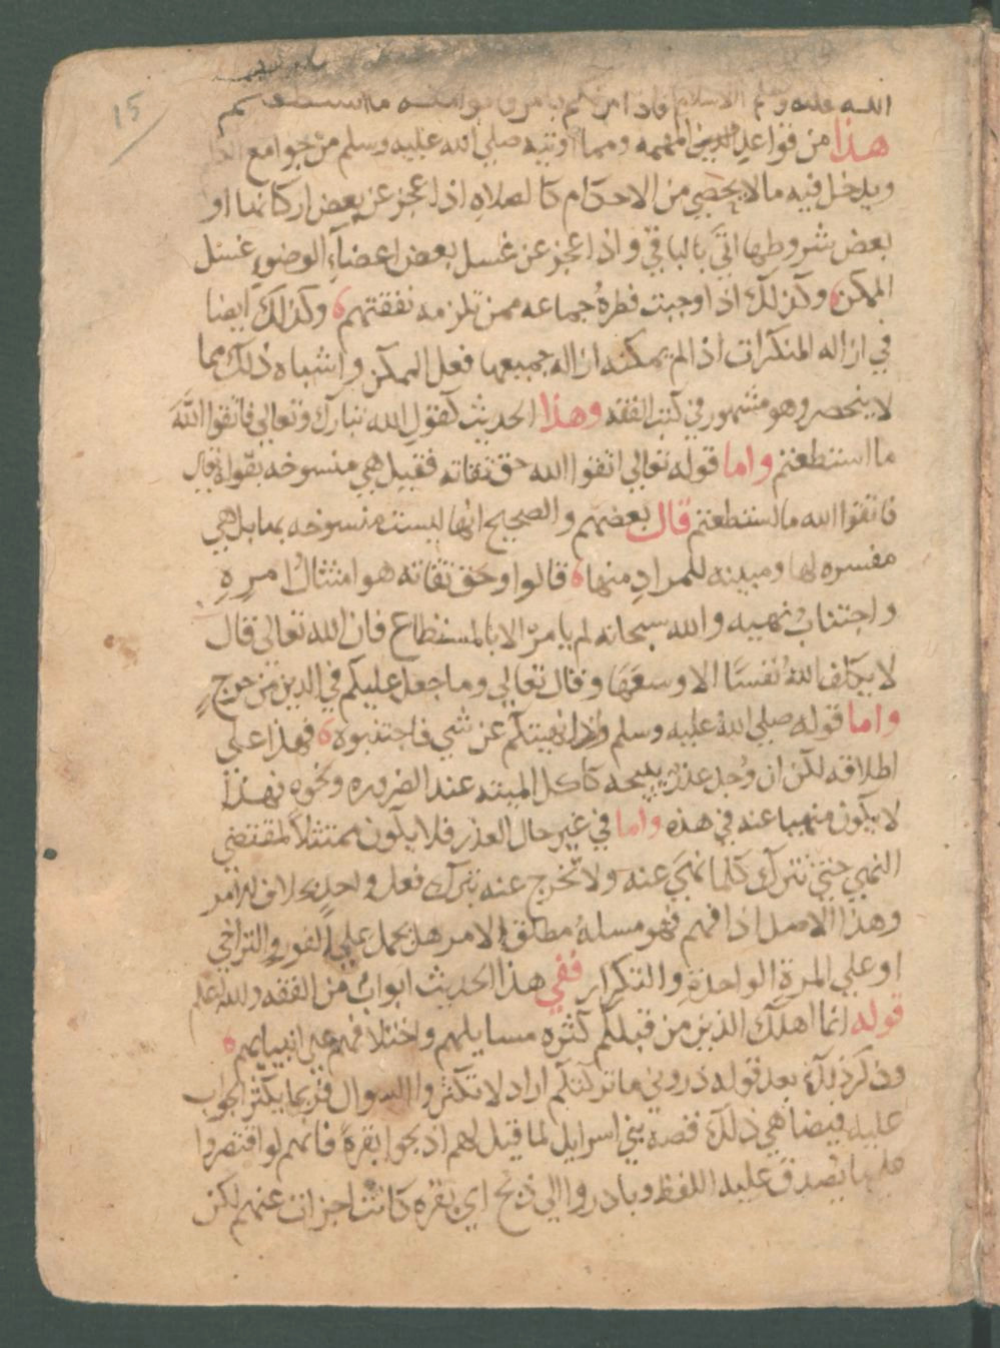 15
الله عليه وسلم الاسلام فاذا امرتكم بامر فاتوا منه ما استطعتم
هذا من قواعد الدين المهمه ومما اوتيه صلي الله عليه وسلم من جوامع
ويدخل فيه مالا يحصي من الاحكام كالصلاه اذا عجز عن بعض اركانها او
بعض شروطها اتي بالباقي واذا عجز عن غسل بعض اعضاء الوضوء غسل
الممكن وكذلك اذا وجبت فطرة جماعه ممن تلزمه نفقتهم وكذلك ايضا
في ازاله المنكرات اذا لم يمكنه ازاله جميعها فعل الممكن واشباه ذلك مما
لا ينحصر وهو مشهور في كتب الفقه وهذا الحديث كقول الله تبارك وتعالي فاتقوا الله
ما استطعتم واما قوله تعالي اتقوا الله حق تقاته فقيل هي منسوخه بقوله تعالي
فاتقوا الله ما استطعتم قال بعضهم والصحيح انها ليست منسوخه بها بل هي
مفسره لها ومبينه للمراد منها قالوا وحق تقاته هو امتثال امره
واجتناب نهيه والله سبحانه لم يامر الا بالمستطاع فان الله تعالي قال
لا يكلف الله نفسا الا وسعها وقال تعالي وما جعل عليكم في الدين من حرج
واما قوله صلي الله عليه وسلم واذا نهيتكم عن شي فاجتنبوه فهذا علي
اطلاقه لكن ان وجد عذر يبيحه كاكل الميته عند الضروره ونحوه فهذا
لا يكون منهيا عنه في هذه واما في غير حال العذر فلا يكون ممتثلا لمقتضي
النهي حتي تترك كلما نهي عنه ولا تخرج عنه بترك فعل واحد بخلاف الامر
وهذا الاصل اذا فهم فهو مسلة مطلق الامر هل يحمل علي الفور او التراخي
او علي المرة الواحدة والتكرار ففي هذا الحديث ابواب من الفقه والله اعلم
قوله انما اهلك الذين من قبلكم كثره مسايلهم واختلافهم علي انبيايهم
وذكر ذلك بعد قوله ذروني ما تركتكم اراد لا تكثروا السوال فربما يكثر الجواب
عليه فيضاهي ذلك قصه بني اسرايل لما قيل لهم اذبحوا بقرة فانهم لو اقتصروا
علي ما يصدق عليه اللفظ وبادروا الي ذبح اي بقره كانت اجزات عنهم لكن